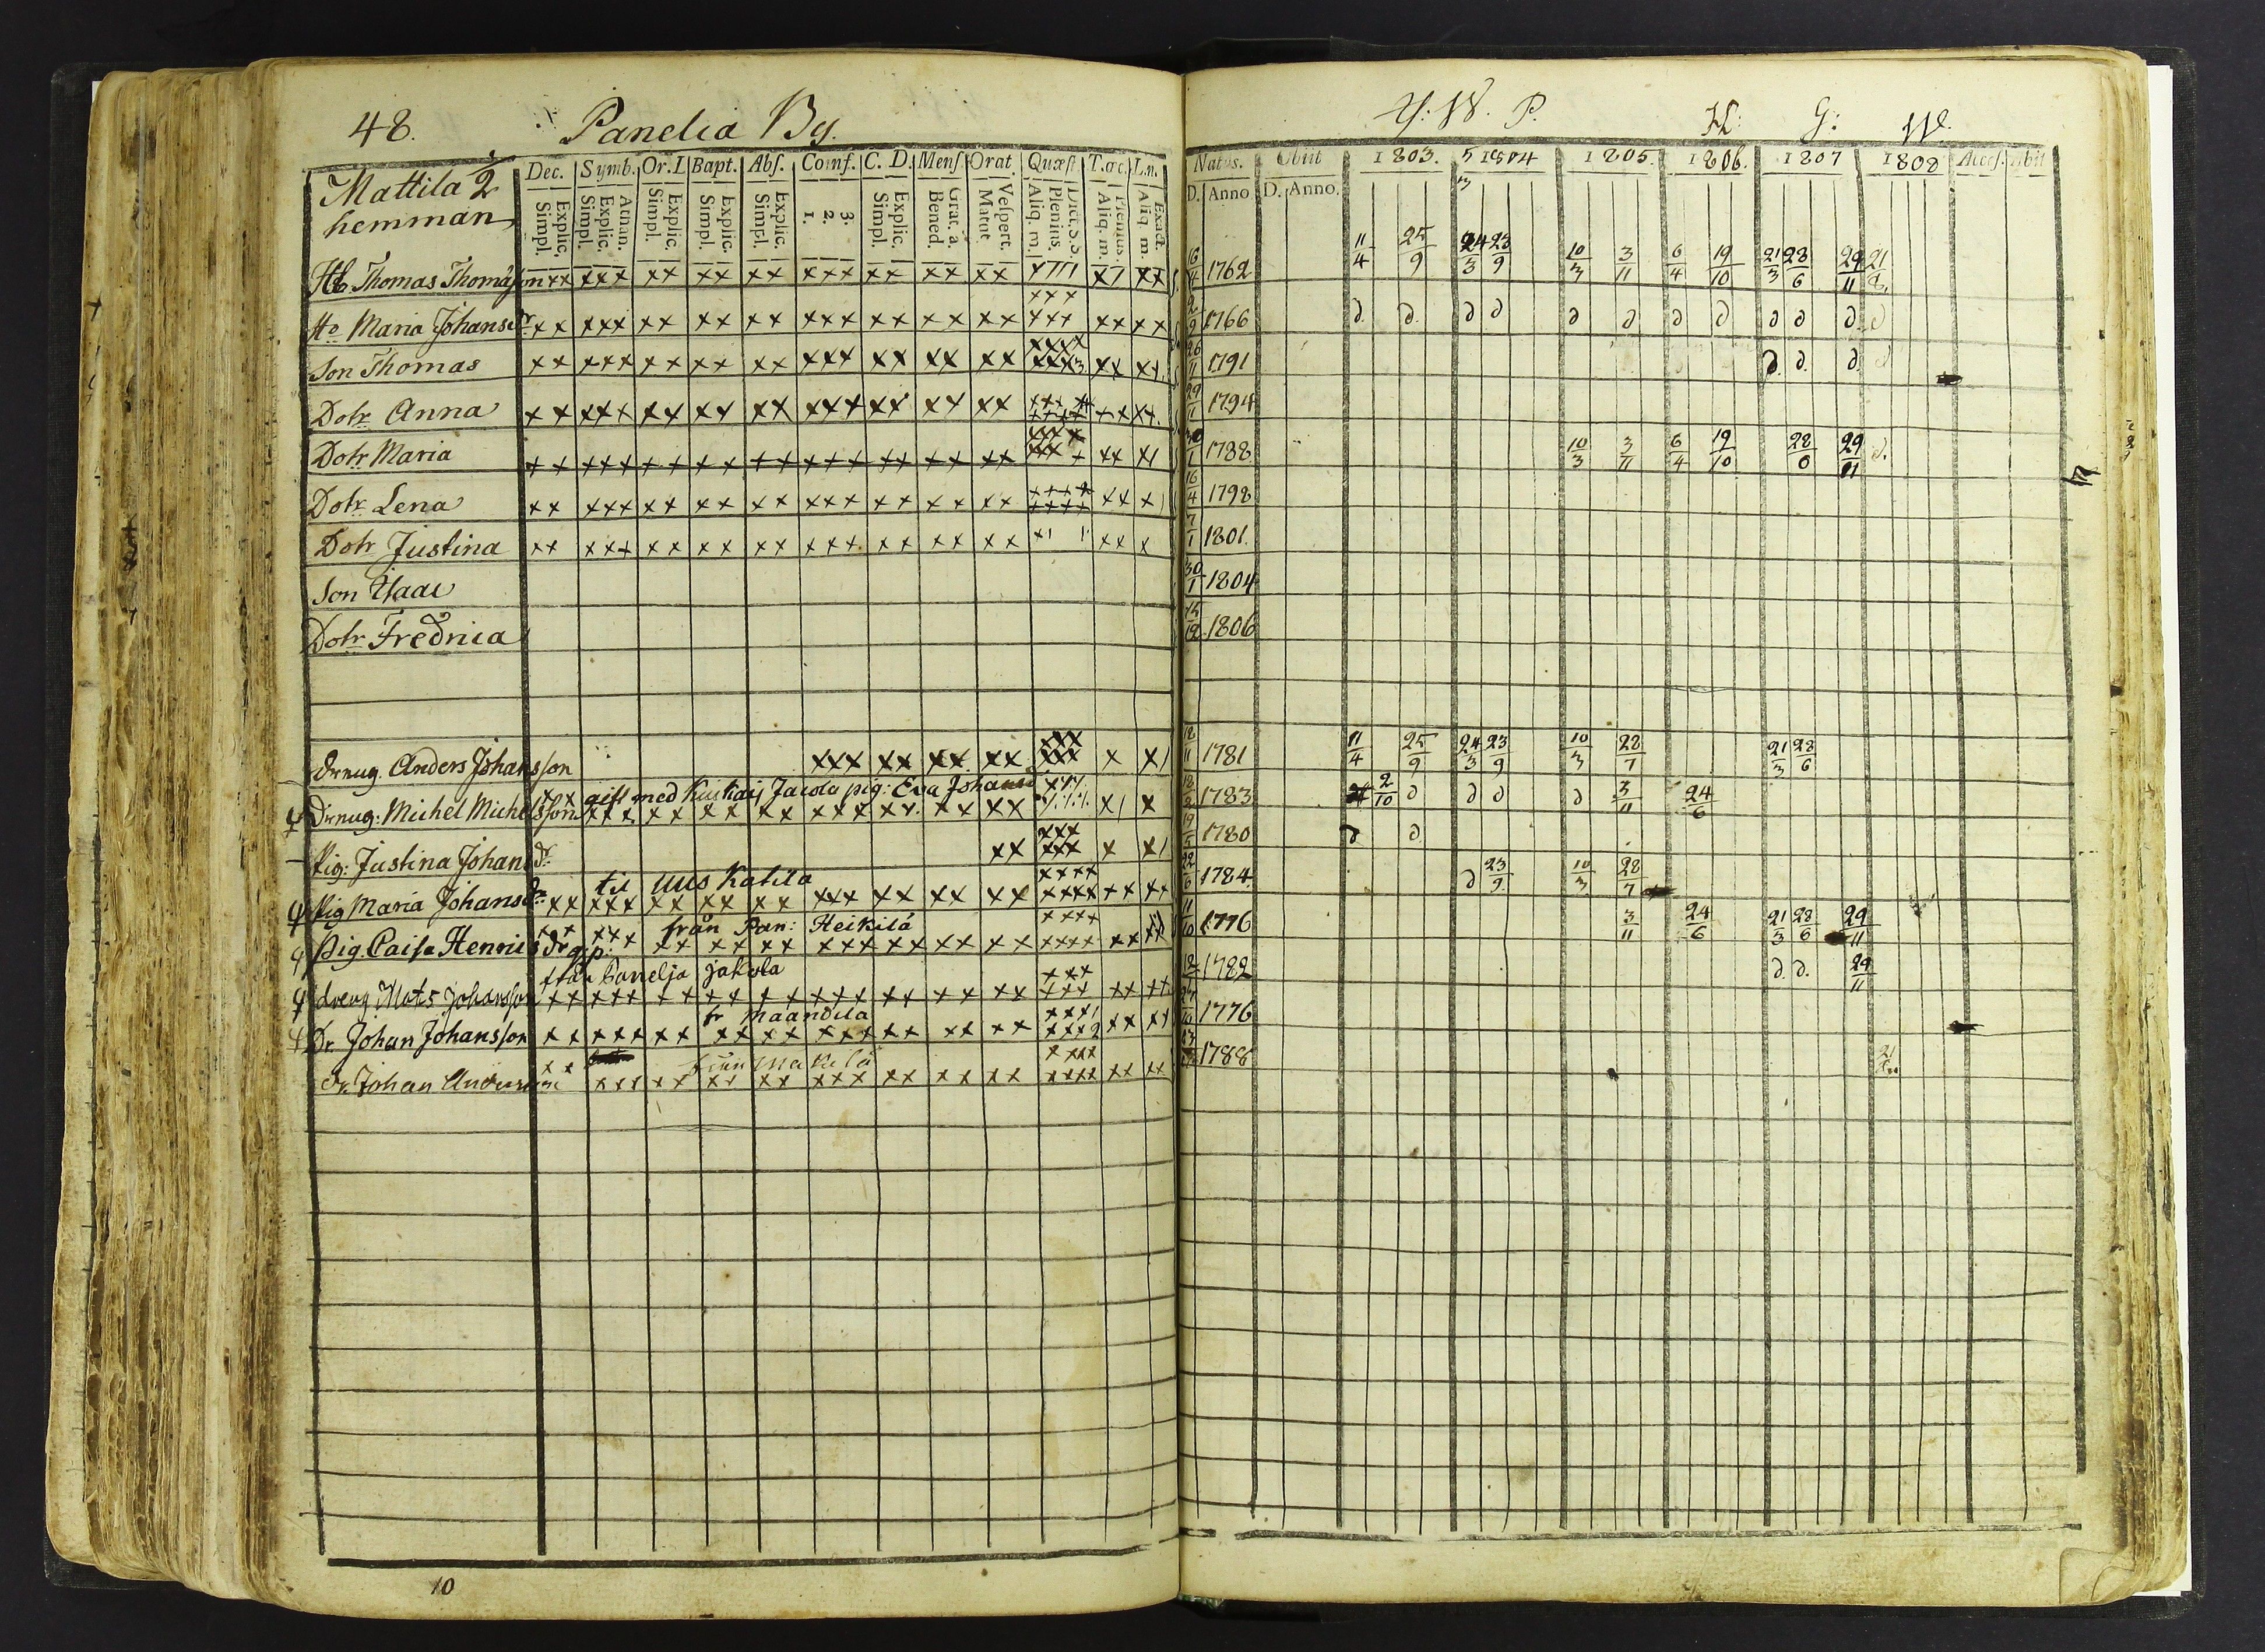 48. Panelia By.
Mattila ½
hemman
Dec. Symb. Or. L Bapt. Abs. Comf. C. D. Mens. Orat. Quæst. T.œc. L.n.
Explic. Simpl. Athan. Explic. Simpl. Explic. Simpl. Explic. Simpl. Explic. Simpl. 3. 2. 1. Explic. Simpl. Grat. a. Bened. Vespert. Matut. Dict. S.S. Plenius. Aliq. m. Plenius. Aliq. m. Exact. Aliq. m.
Hb. Thomas Thomasson xx xxx xx xx xx xxx xx xx xx
Ho Maria Johansdr xx xxx xx xx xx xxx xx xx xx xxx xxx xx xx
Son Thomas xx xxx xx xx xx xxx xx xx xx
Dotr Anna xx xxx xx xx xx xxx xx xx xx
Dotr Maria xx xxx xx xx xx xxx xx xx xx
Dotr Lena xx xxx xx xx xx xxx xx xx xx
Dotr Justina xx xxx xx xx xx xxx xx xx xx
Son Isaac
Dotr Fredrica
Dreng. Anders Johansson xxx xx xx xx xxx xxx x x/
gift med Kiukais Jacola pig: Eva Johansd
Dreng: Michel Michelsson xxx xx xx xx xxx xx xx xx
Pig: Justina Johansdr xx xxx xxx x x/
til Uus Katila
Pig Maria Johansdr xx xxx xx xx xx xxx xx xx xx
från Pan: Heikilä
Pig. Caisa Henricsdr xx xx xx xxx xx xx xx
från Panelja jakola
dreng Mats Johansson xx xxx xx xx xx xxx xx xx xx
fr maandila
Dr. Johan Johansson xx xxx xx xx xx xxx xx xx xx
Dr. Johan Andersson xxx xx xx xx xxx xx xx xx
10
Y: W. P. H: G: W.
Natus. Obiit 1803. 1804 1805. 1806. 1807 1808 Acces. Abiit
D. Anno D. Anno.
16/4 1762 11/4 25/9 24/3 23/9 10/3 3/11 6/4 19/10 21/3 28/6 29/11 21/8
2/9 1766 ∂. ∂. ∂ ∂ ∂ ∂ ∂ ∂ ∂ ∂ ∂ ∂
26/11 1791 ∂. ∂. ∂. ∂
29/11 1794
30/1 1788 10/3 3/11 6/4 19/10 28/6 29/11 ∂.
16/4 1798
7/1 1801.
30/1 1804
15/12 1806
18/11 1781 11/4 25/9 24/3 23/9 10/3 28/7 21/3 28/6
18/2 1783 2/10 ∂ ∂ ∂ ∂ 3/11 24/6
19/5 1780 ∂ ∂.
22/6 1784. ∂ 23/9 10/3 28/7
11/10 1776 3/11 24/6 21/3 28/6 29/11
1782 ∂. ∂. 29/11
1776
1788